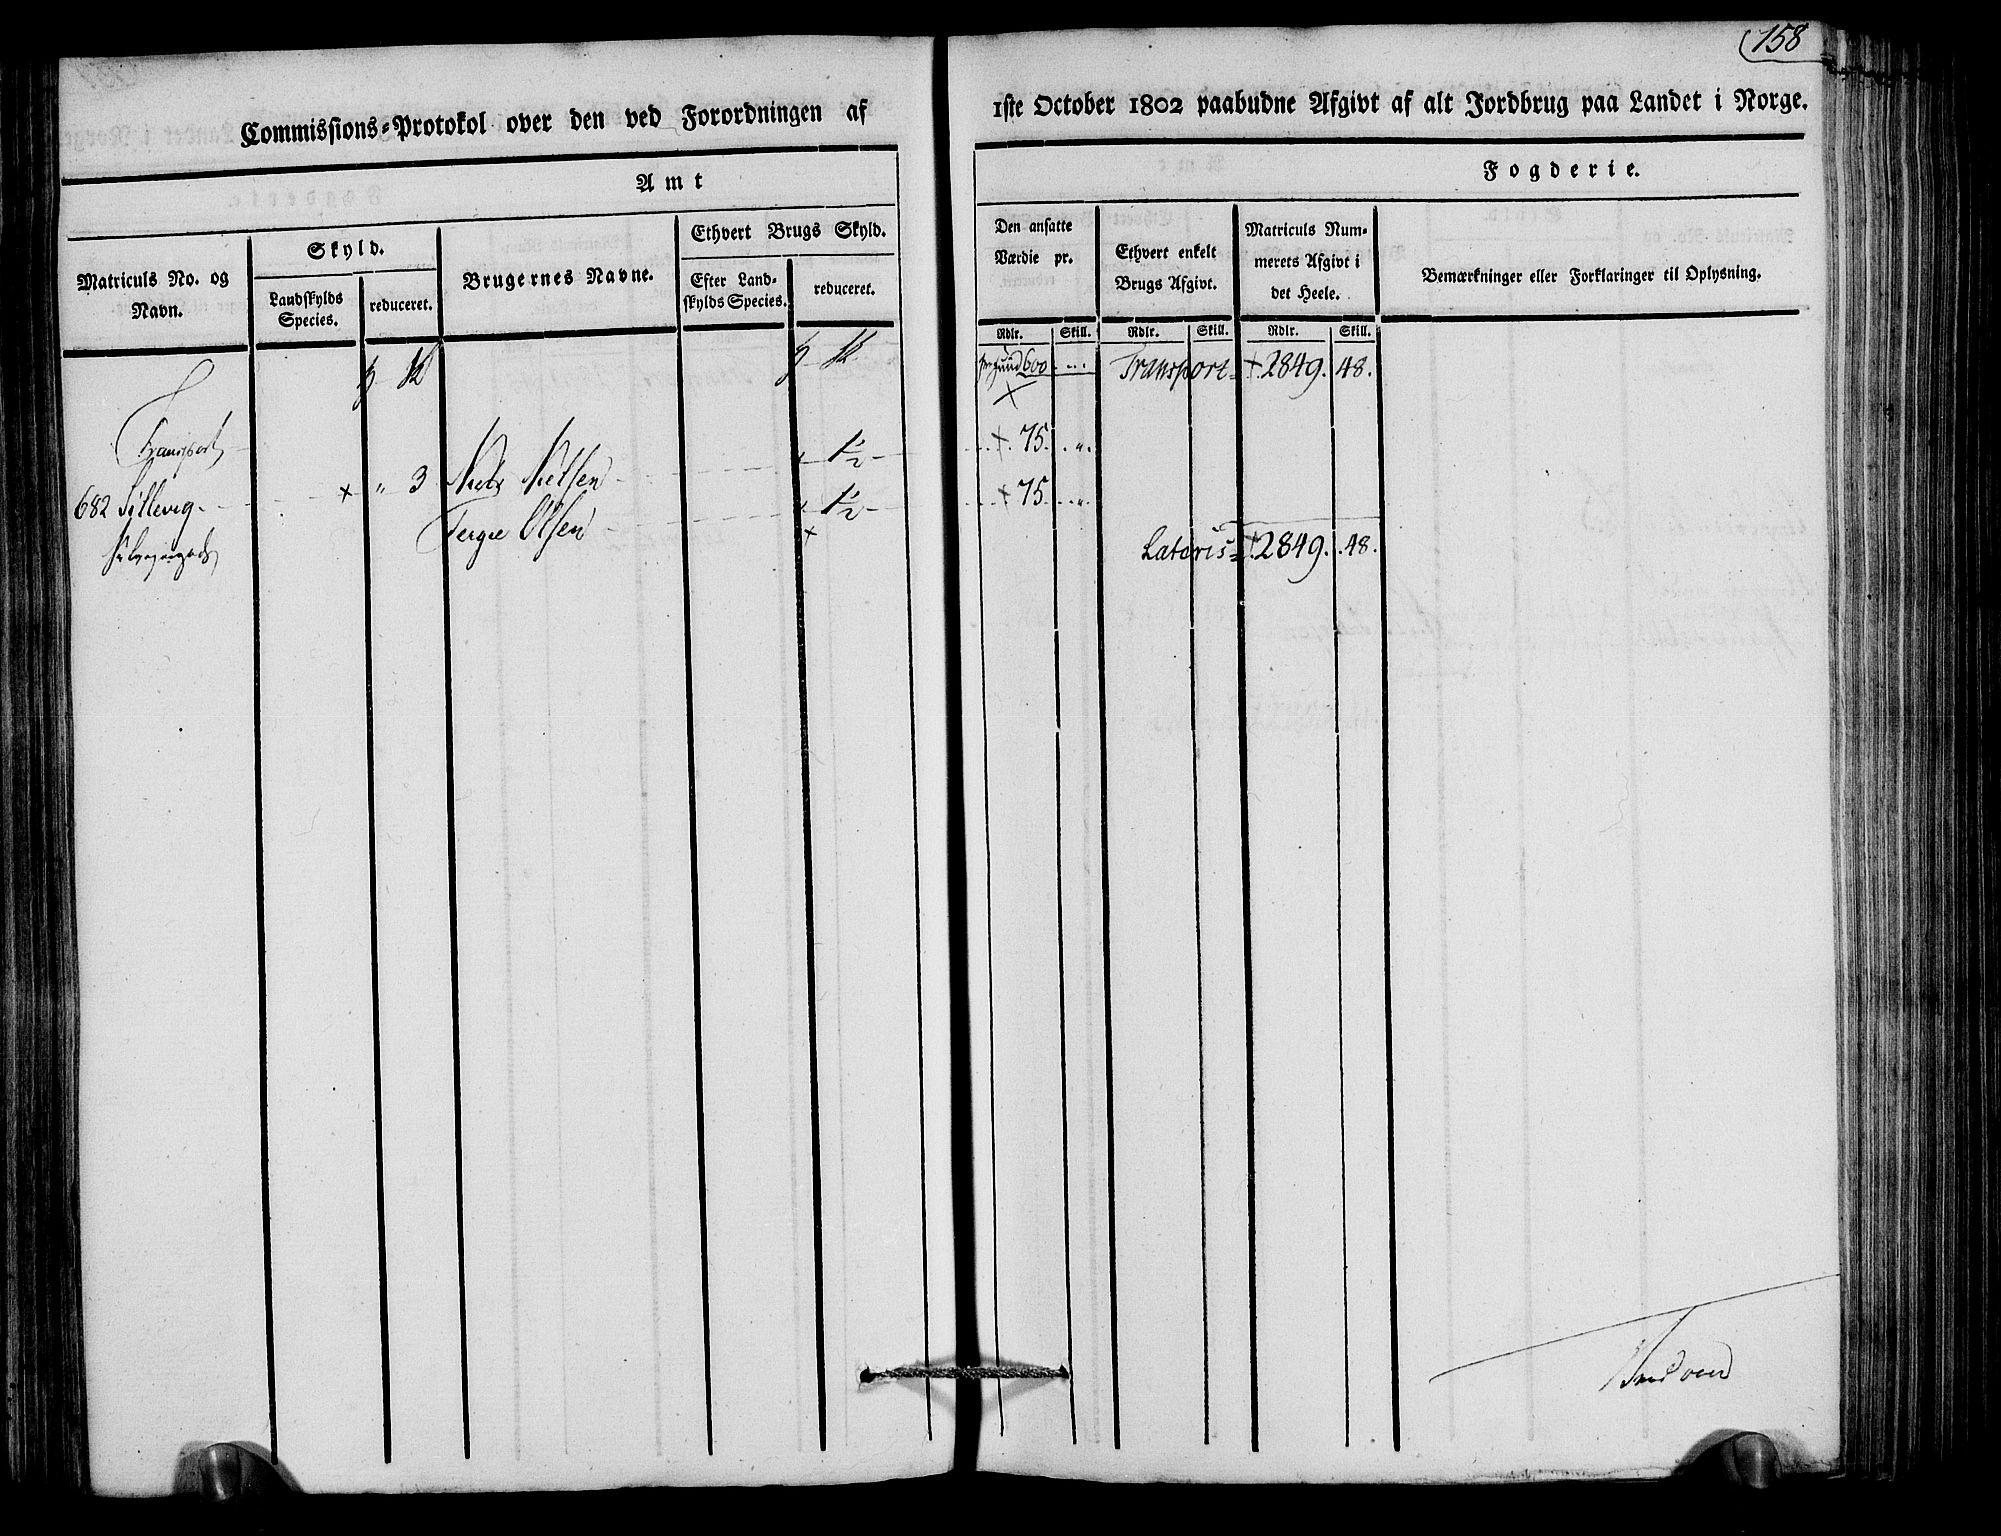 158
Commissions-Protokol over den ved Forordningen af 1ste October 1802 paabudne Afgivt af alt Jordbrug paa Landet i Norge.
Amt
Fogderie.
Matriculs No. og Navn.
Skyld.
Landskylds Species.
reduceret.
Brugernes Navne.
Ethvert Brugs Skyld.
Efter Landskylds Species.
reduceret.
Den ansatte Værdie pr.
Rdlr. Skill.
Ethvert enkelt Brugs Afgivt.
Rdlr. Skill.
Matriculs Nummerets Afgivt i det Heele.
Rdlr. Skill.
Bemærkninger eller Forklaringer til Oplysning.
600 Transport 2849. 48.
Transport
682 Sillevig 3 Niels Nielsen 1½ 75 "
Terge Olsen 1½ 75 "
Lateris 2849. 48.